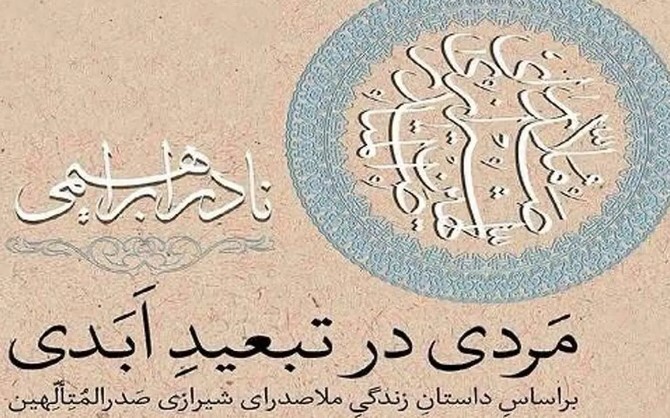 نادر ابراهیمی
مَردی در تبعیدِ اَبَدی
براساس داستان زندگیِ ملاصدرای شیرازی صَدرالمُتِألّهین